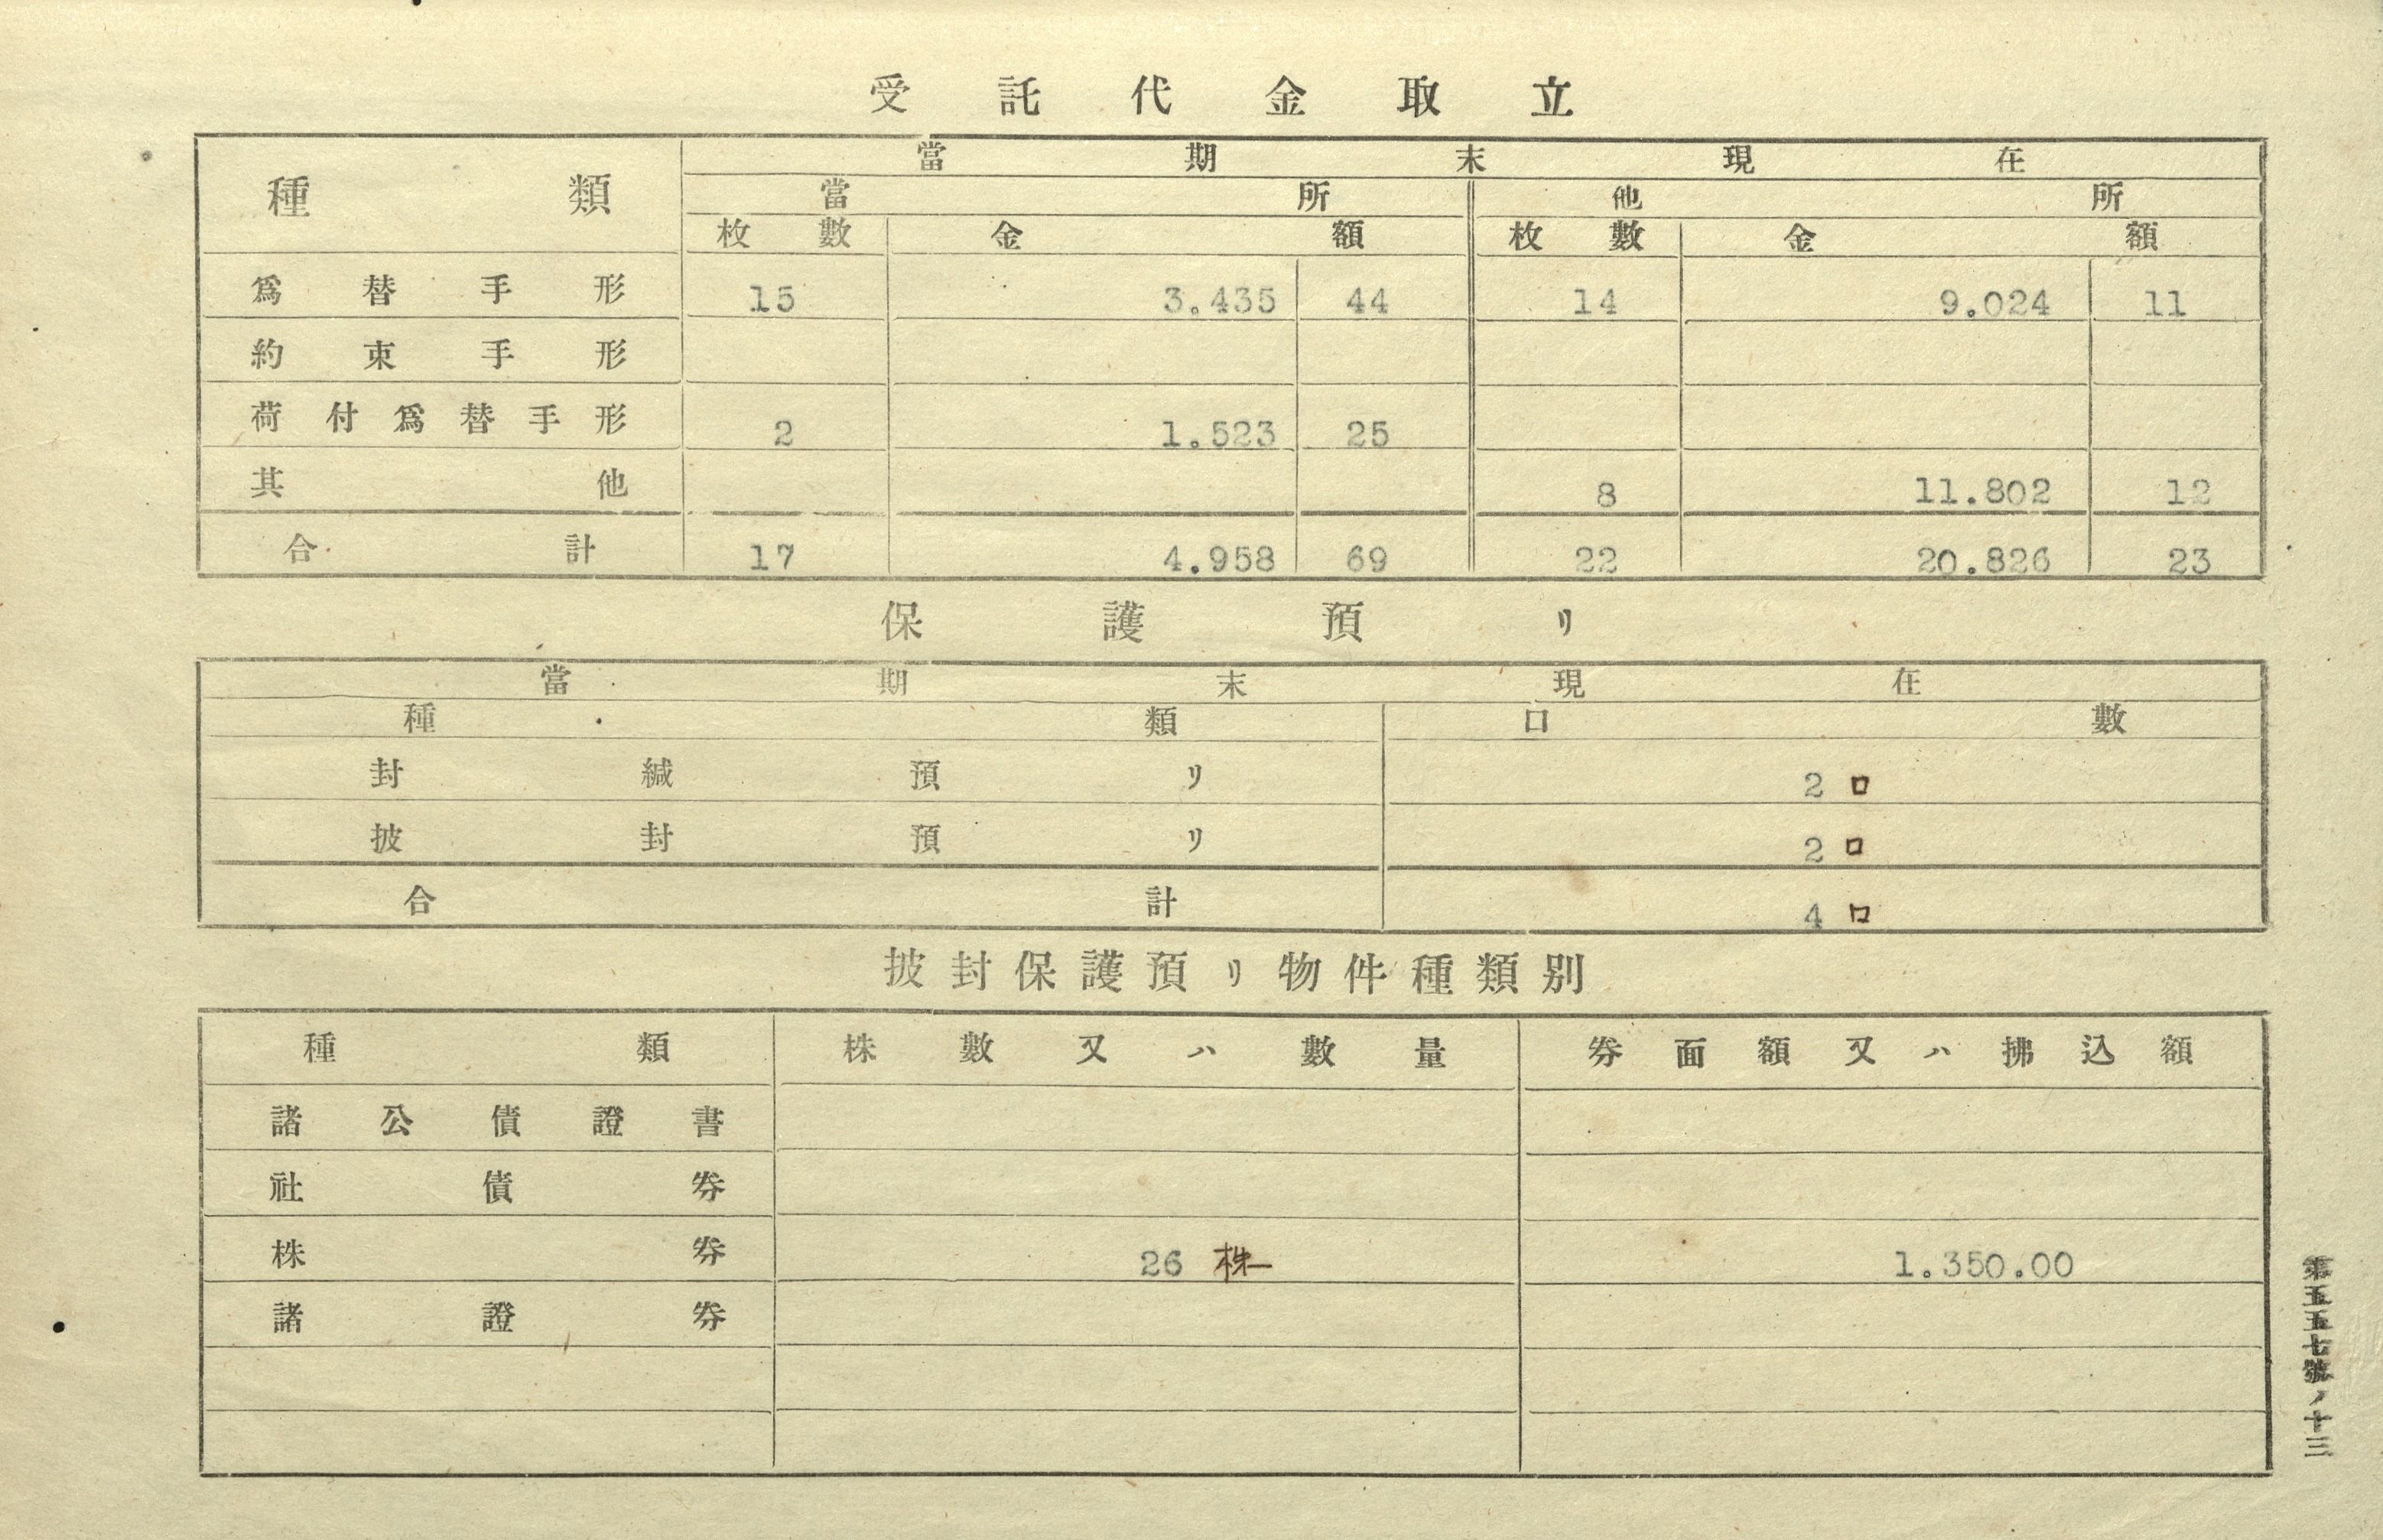 受託代金取立
種類 當期末現在
當所 他所
枚數 金額 枚數 金額
爲替手形 15 3.435 44 14 9.024 11
約束手形
荷付爲替手形 2 1.523 25
其他 8 11.802 12
合計 17 4.958 69 22 20.826 23
保護預リ
當期末現在
種類 口數
封緘預リ 2 口
披封預リ 2 口
合計 4 口
披封保護預リ物件種類別
種類 株數又ハ數量 券面額又ハ拂込額
諸公債證書
社債券
株券 26 株 1.350.00
諸證券
第五五七號ノ十三